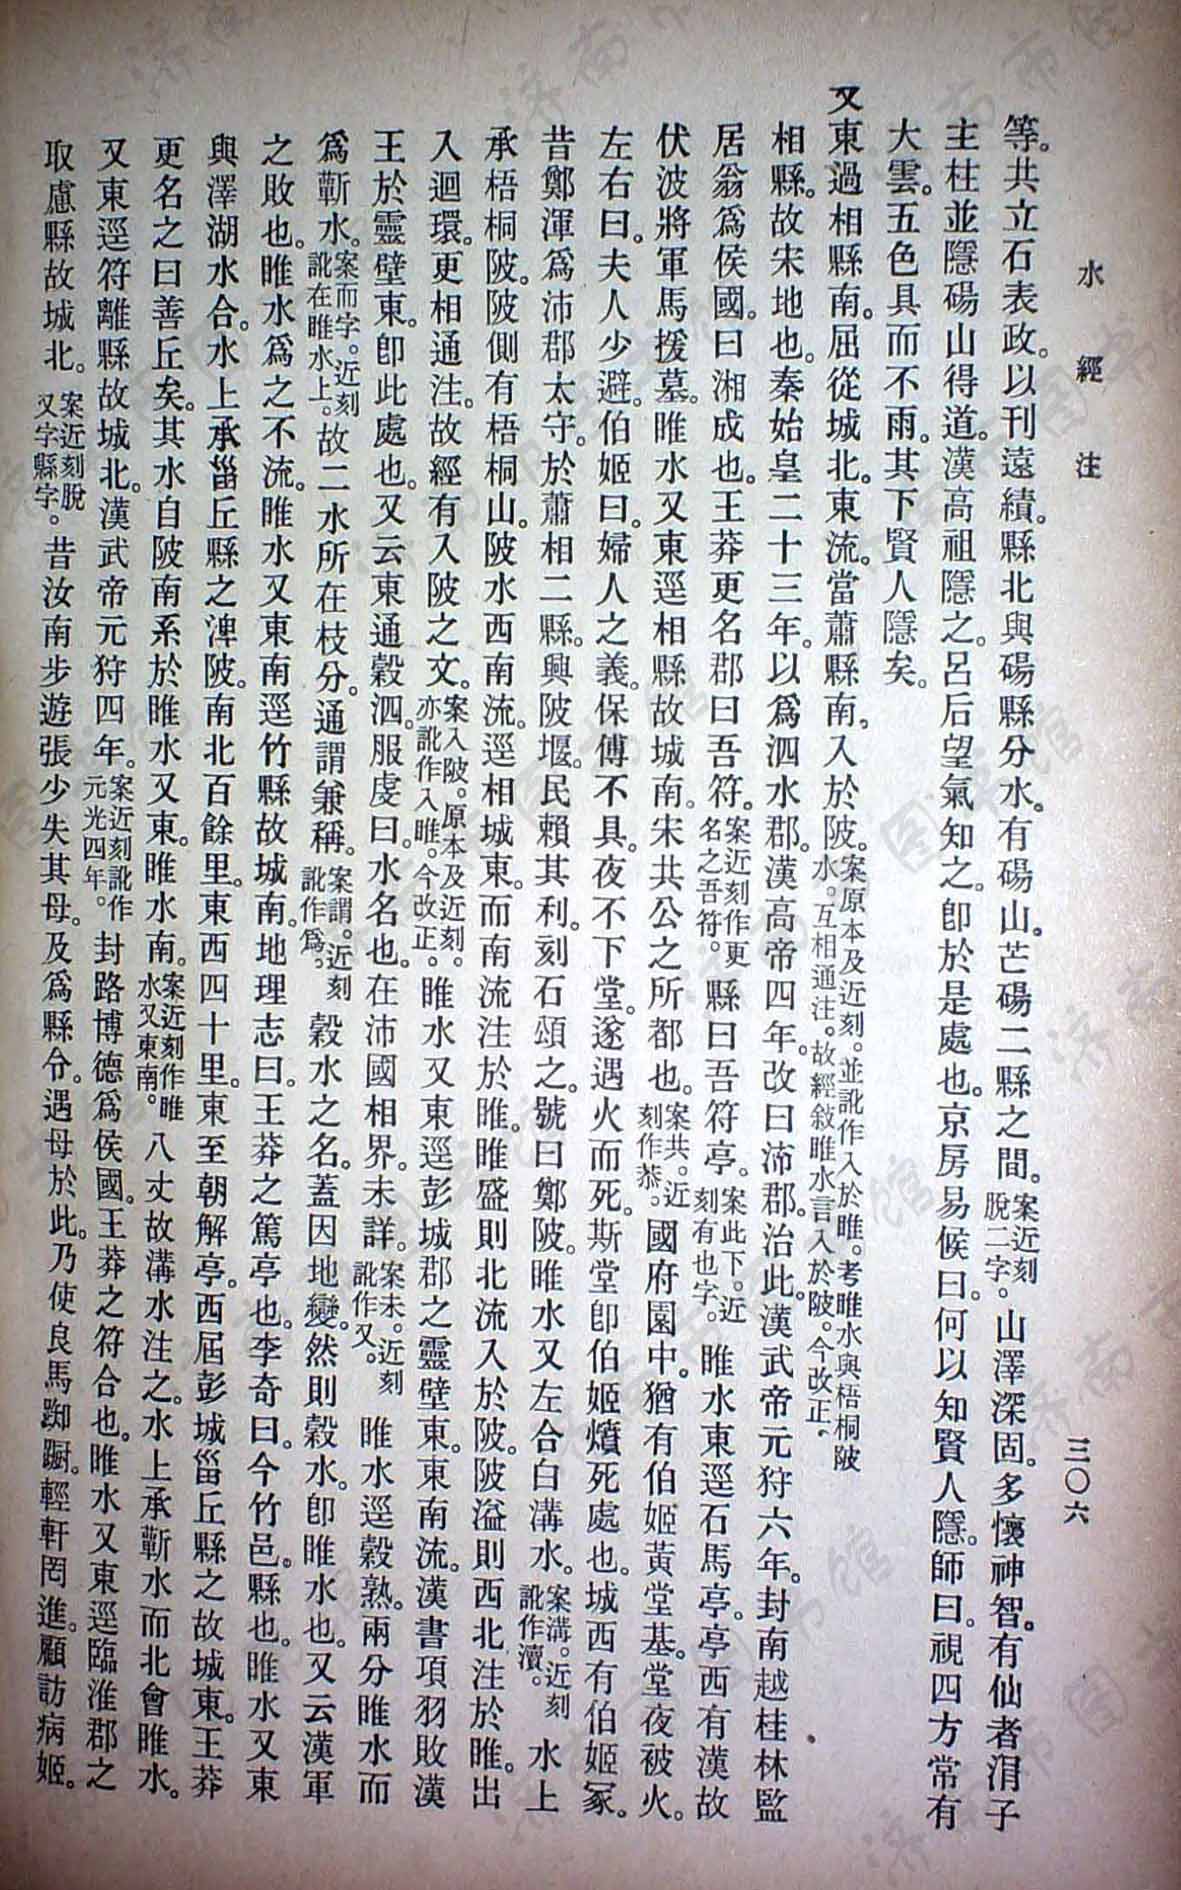 水經注
三〇六
等。共立石表政。以刊遠績。縣北與碭縣分水。有碭山。芒碭二縣之間。案近刻脫二字。山澤深固。多懷神智。有仙者涓子
主柱並隱碭山得道。漢高祖隱之。呂后望氣知之。卽於是處也。京房易候曰。何以知賢人隱。師曰。視四方常有
大雲。五色具而不雨。其下賢人隱矣。
又東過相縣南。屈從城北。東流。當蕭縣南。入於陂。案原本及近刻。並訛作入於睢。考睢水與梧桐陂水。互相通注。故經敍睢水言入於陂。今改正。
相縣。故宋地也。秦始皇二十三年。以爲泗水郡。漢高帝四年。改曰沛郡。治此。漢武帝元狩六年。封南越桂林監
居翁爲侯國。曰湘成也。王莽更名郡曰吾符。案近刻作更名之吾符。縣曰吾符亭。案此下。近刻有也字。睢水東逕石馬亭。亭西有漢故
伏波將軍馬援墓。睢水又東逕相縣故城南。宋共公之所都也。案共。近刻作恭。國府園中。猶有伯姬黃堂基。堂夜被火。
左右曰。夫人少避。伯姬曰。婦人之義。保傅不具。夜不下堂。遂遇火而死。斯堂卽伯姬燌死處也。城西有伯姬冢。
昔鄭渾爲沛郡太守。於蕭相二縣。興陂堰。民賴其利。刻石頌之。號曰鄭陂。睢水又左合白溝水。案溝。近刻訛作瀆。水上
承梧桐陂。陂側有梧桐山。陂水西南流。逕相城東。而南流注於睢。睢盛則北流入於陂。陂溢則西北注於睢。出
入迴環。更相通注。故經有入陂之文。案入陂。原本及近刻。亦訛作入睢。今改正。睢水又東逕彭城郡之靈壁東。東南流。漢書項羽敗漢
王於靈壁東。卽此處也。又云東通穀泗。服虔曰。水名也。在沛國相界。未詳。案未。近刻訛作又。睢水逕穀熟。兩分睢水而
爲蘄水。案而字。近刻訛在睢水上。故二水所在枝分。通謂兼稱。案謂。近刻訛作爲。穀水之名。蓋因地變。然則穀水。卽睢水也。又云漢軍
之敗也。睢水爲之不流。睢水又東南逕竹縣故城南。地理志曰。王莽之篤亭也。李奇曰。今竹邑。縣也。睢水又東
與滜湖水合。水上承甾丘縣之渒陂。南北百餘里。東西四十里。東至朝解亭。西屆彭城甾丘縣之故城東。王莽
更名之曰善丘矣。其水自陂南系於睢水又東。睢水南。案近刻作睢水又東南。八丈故溝水注之。水上承蘄水而北會睢水。
又東逕符離縣故城北。漢武帝元狩四年。案近刻訛作元光四年。封路博德爲侯國。王莽之符合也。睢水又東逕臨淮郡之
取慮縣故城北。案近刻脫又字縣字。昔汝南步遊張少失其母。及爲縣令。遇母於此。乃使良馬踟躕。輕軒罔進。顧訪病姬。